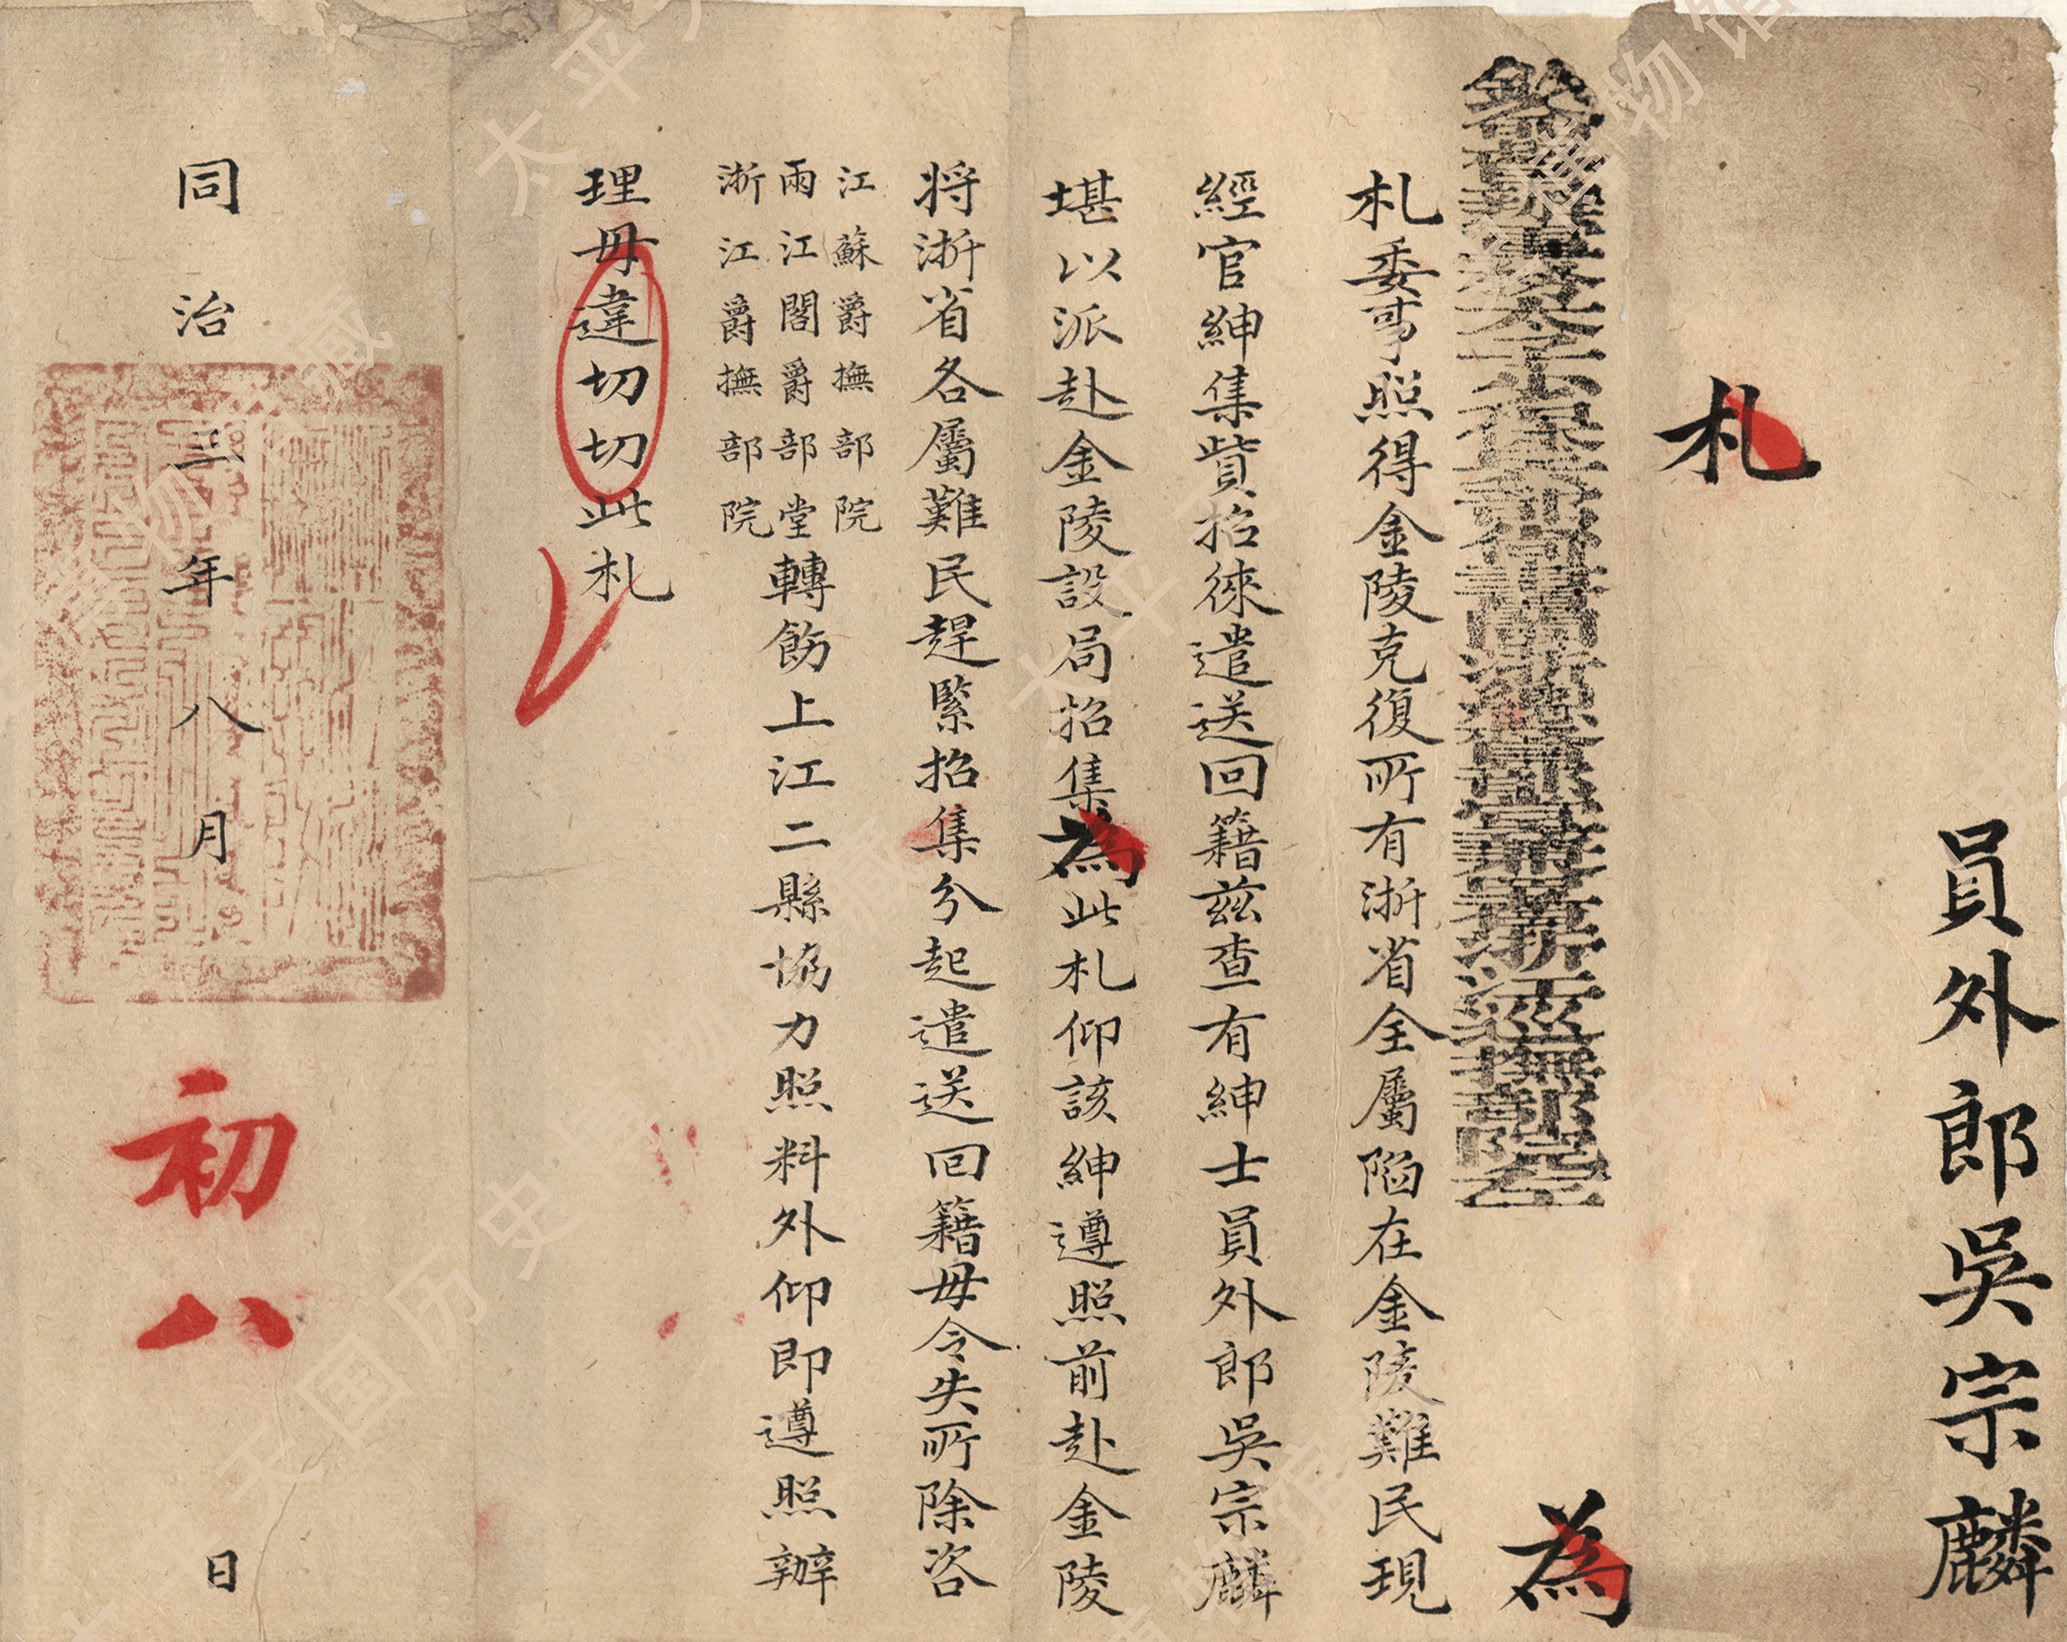 員外郎吳宗麟
札
太子少保兵部尚書閩浙總督部堂兼署浙江巡撫部院左
為
札委事照得金陵克復所有浙省全屬陷在金陵難民現
經官紳集貲招徠遣送回籍茲查有紳士員外郎吳宗麟
堪以派赴金陵設局招集為此札仰該紳遵照前赴金陵
將浙省各屬難民趕緊招集分起遣送回籍毋令失所除咨
江蘇爵撫部院
兩江閣爵部堂
浙江爵撫部院
轉飭上江二縣協力照料外仰即遵照辦
理毋違切切此札
同治三年八月初八日
太平天国历史博物馆